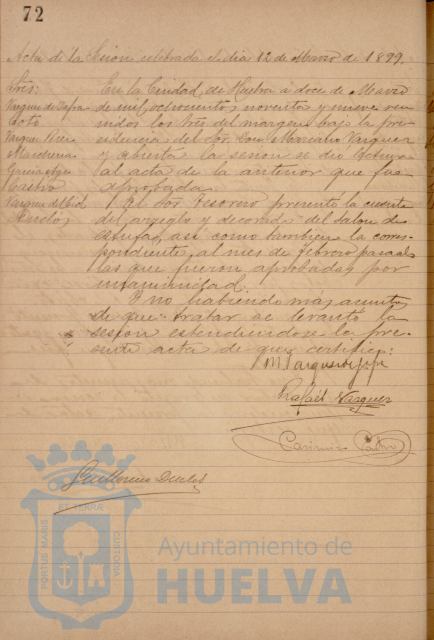 72
Acta de la Sesion celebrada el dia 12 de Marzo de 1899.
Sres:
Vazquez de Zafra
Coto
Vazquez Perez
Marchena
Garcia
Castro
Vazquez del Cid
Duclós
En la Ciudad de Huelva a doce de Marzo
de mil ochocientos noventa y nueve reu
nidos los Sres del margen bajo la pre
sidencia del Sor Don Mariano Vazquez
y abierta la sesion se dio lectura
al acta de la anterior que fue
aprobada.
El Sor Tesorero presentó la cuenta
del arreglo y decorado del Salon de
estufa, asi como tambien la corres
pondiente al mes de Febrero pasado
las que fueron aprobadas por
unanimidad.
Y no habiendo mas asuntos
de que tratar se levantó la
sesion estendiendose la pre
sente acta de que certifico:
M Vazquez de Zafra
Rafaél Vazquez
Casimiro Castro
Guillermo Duclós
PORTUS MARIS ET TERRÆ CUSTODIA
Ayuntamiento de
HUELVA